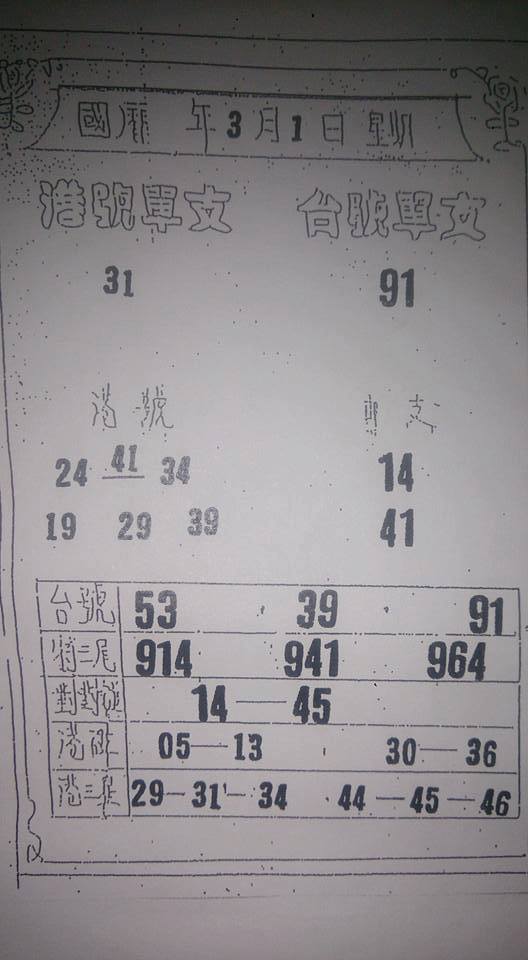 國曆 年3月1日 星期
港號單支 台號單支
31 91
港號 單支
24 41 34 14
19 29 39 41
台號 53 39 91
特三尾 914 941 964
對對碰 14—45
港 05—13 30—36
港三 29—31—34 44—45—46